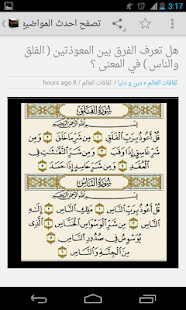 3:17
تصفح احدث المواضيع
هل تعرف الفرق بين المعوذتين ( الفلق
والناس ) في المعنى ؟
ثقافات العالم » دين و دنيا / ثقافات العالم / 8 hours ago
سُورَةُ الفَلَقِ
قُلْ أَعُوذُ بِرَبِّ الْفَلَقِ ۝ مِن شَرِّ مَا خَلَقَ ۝ وَمِن
شَرِّ غَاسِقٍ إِذَا وَقَبَ ۝ وَمِن شَرِّ النَّفَّاثَاتِ فِي
الْعُقَدِ ۝ وَمِن شَرِّ حَاسِدٍ إِذَا حَسَدَ ۝
سُورَةُ النَّاسِ
قُلْ أَعُوذُ بِرَبِّ النَّاسِ ۝ مَلِكِ النَّاسِ ۝
إِلَٰهِ النَّاسِ ۝ مِن شَرِّ الْوَسْوَاسِ الْخَنَّاسِ ۝ الَّذِي
يُوَسْوِسُ فِي صُدُورِ النَّاسِ ۝
مِنَ الْجِنَّةِ وَالنَّاسِ ۝